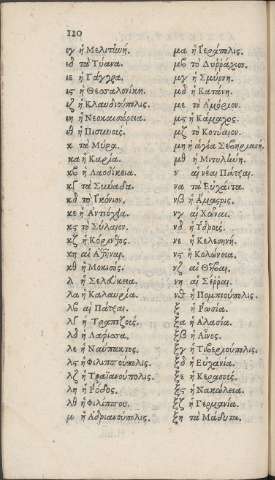 120
ιγ ἡ Μελιτίνη.
ιδ τὰ Τύανα.
ιε ἡ Γάγγρα.
ις ἡ Θεσσαλονίκη.
ιζ ἡ Κλαυδιούπολις.
ιη ἡ Νεοκαισάρεια.
ιθ ἡ Πισινοῦς.
κ τὰ Μύρα.
κα ἡ Καρία.
κβ ἡ Λαοδίκεια.
κγ τὰ Σύναδα.
κδ τὸ Ἰκόνιον.
κε ἡ Ἀντιόχεια.
κς τὸ Σύλαιον.
κζ ἡ Κόρινθος.
κη αἱ Ἀθῆναι.
κθ ἡ Μωκισός.
λ ἡ Σελεύκεια.
λα ἡ Καλαυρία.
λβ αἱ Πάτραι.
λγ ἡ Τραπεζοῦς.
λδ ἡ Λάρισσα.
λε ἡ Ναύπακτος.
λς ἡ Φιλιππούπολις.
λζ ἡ Τραϊανούπολις.
λη ἡ Ῥόδος.
λθ ἡ Φιλίππου.
μ ἡ Ἀδριανούπολις.
μα ἡ Ἱεράπολις.
μβ τὸ Δυῤῥάχιον.
μγ ἡ Σμύρνη.
μδ ἡ Κατάνη.
με τὸ Ἀμόριον.
μς ἡ Κάμαχος.
μζ τὸ Κοτυάιον.
μη ἡ ἁγία Σεβηριανή.
μθ ἡ Μιτυλήνη.
ν αἱ νέαι Πάτραι.
να τὰ Εὐχάϊτα.
νβ ἡ Ἄμαστρις.
νγ αἱ Χῶναι.
νδ ἡ Ὑδροῦς.
νε ἡ Κελεσηνή.
νς ἡ Κολώνεια.
νζ αἱ Θῆβαι.
νη αἱ Σέῤῥαι.
νθ ἡ Πομπειούπολις.
ξ ἡ Ῥωσία.
ξα ἡ Ἀλανία.
ξβ ἡ Αἶνος.
ξγ ἡ Τιβεριούπολις.
ξδ ἡ Εὐχανία.
ξε ἡ Κερασοῦς.
ξς ἡ Νακώλεια.
ξζ ἡ Γερμανία.
ξη τὰ Μάδυτα.